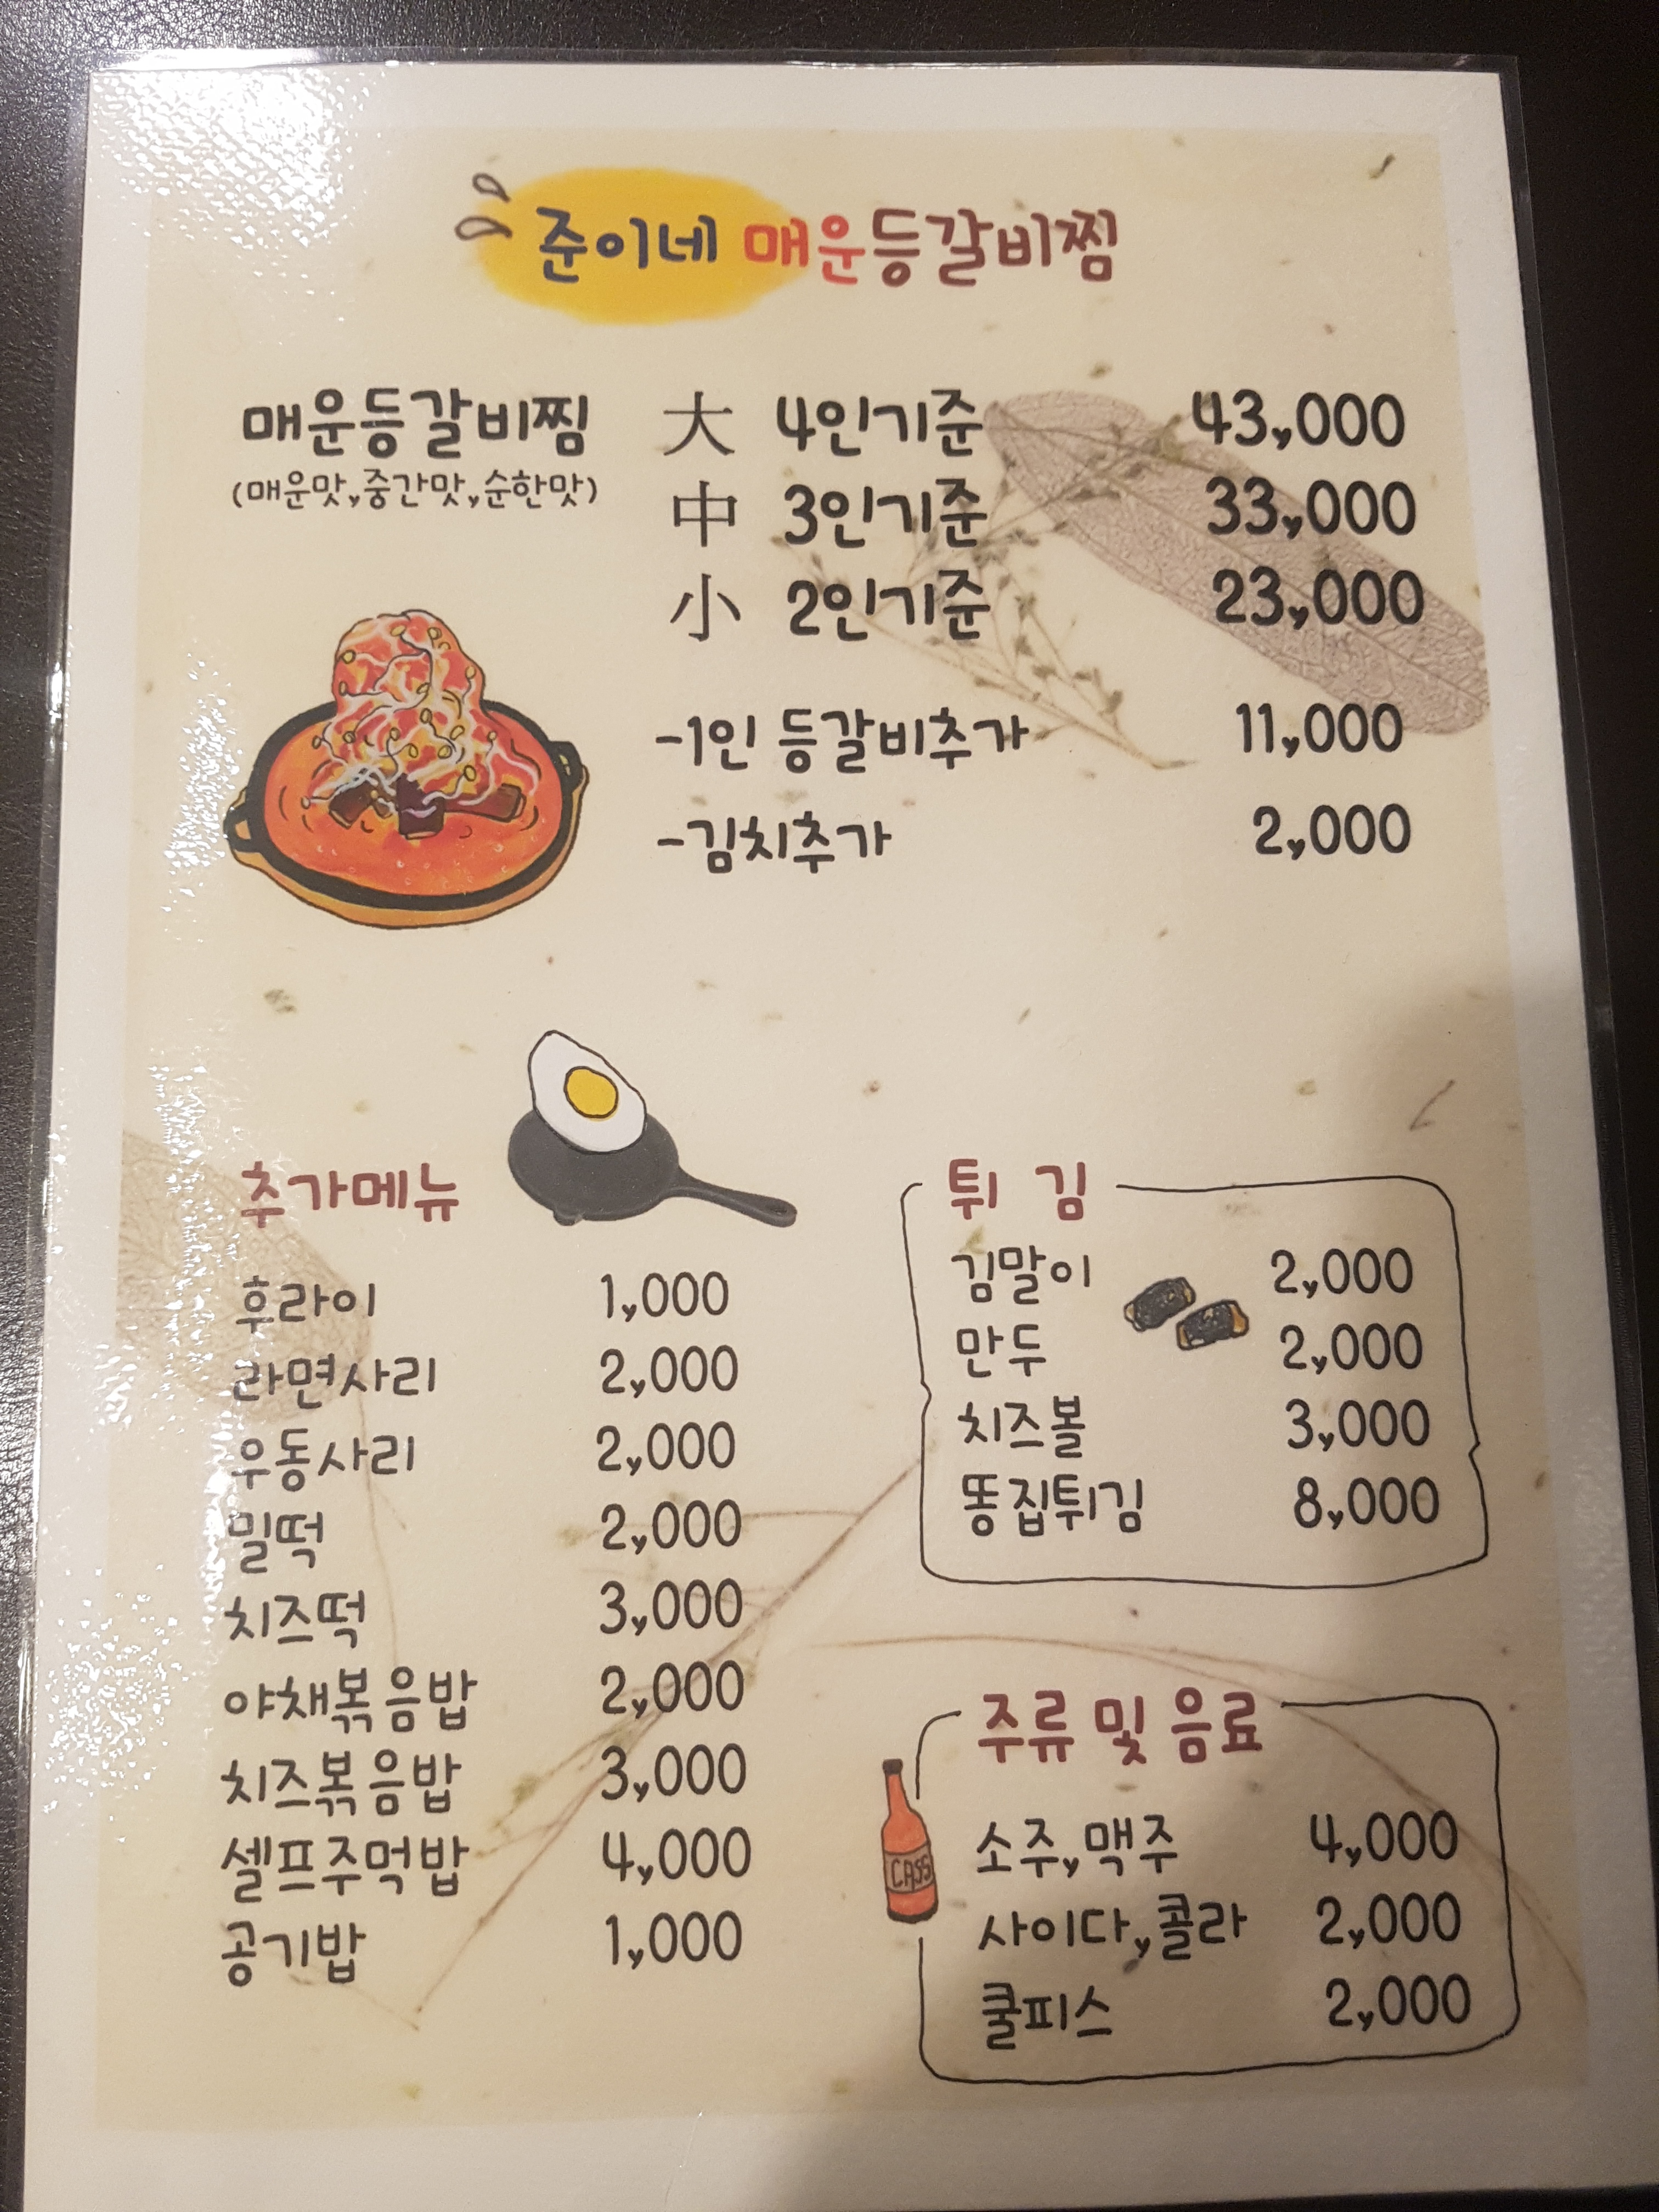 준이네 매운등갈비찜
매운등갈비찜 大 4인기준 43,000
(매운맛,중간맛,순한맛)
中 3인기준 33,000
小 2인기준 23,000
-1인 등갈비추가 11,000
-김치추가 2,000
추가메뉴
후라이 1,000
라면사리 2,000
우동사리 2,000
밀떡 2,000
치즈떡 3,000
야채볶음밥 2,000
치즈볶음밥 3,000
셀프주먹밥 4,000
공기밥 1,000
튀 김
김말이 2,000
만두 2,000
치즈볼 3,000
똥집튀김 8,000
주류 및 음료
CASS
소주,맥주 4,000
사이다,콜라 2,000
쿨피스 2,000